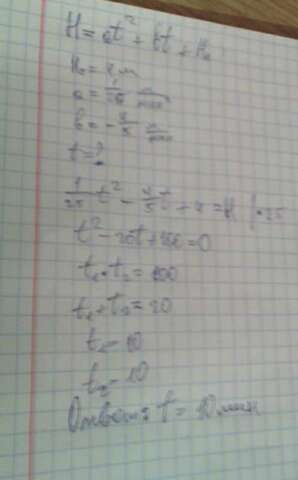 H = at² + bt + H₀
H₀ = 4 м
a = 1/25 м/мин
b = -4/5 м/мин
t = ?
1/25 t² - 4/5 t + 4 = H | · 25
t² - 20t + 100 = 0
t₁ · t₂ = 100
t₁ + t₂ = 20
t₁ = 10
t₂ = 10
Ответ: t = 10 мин